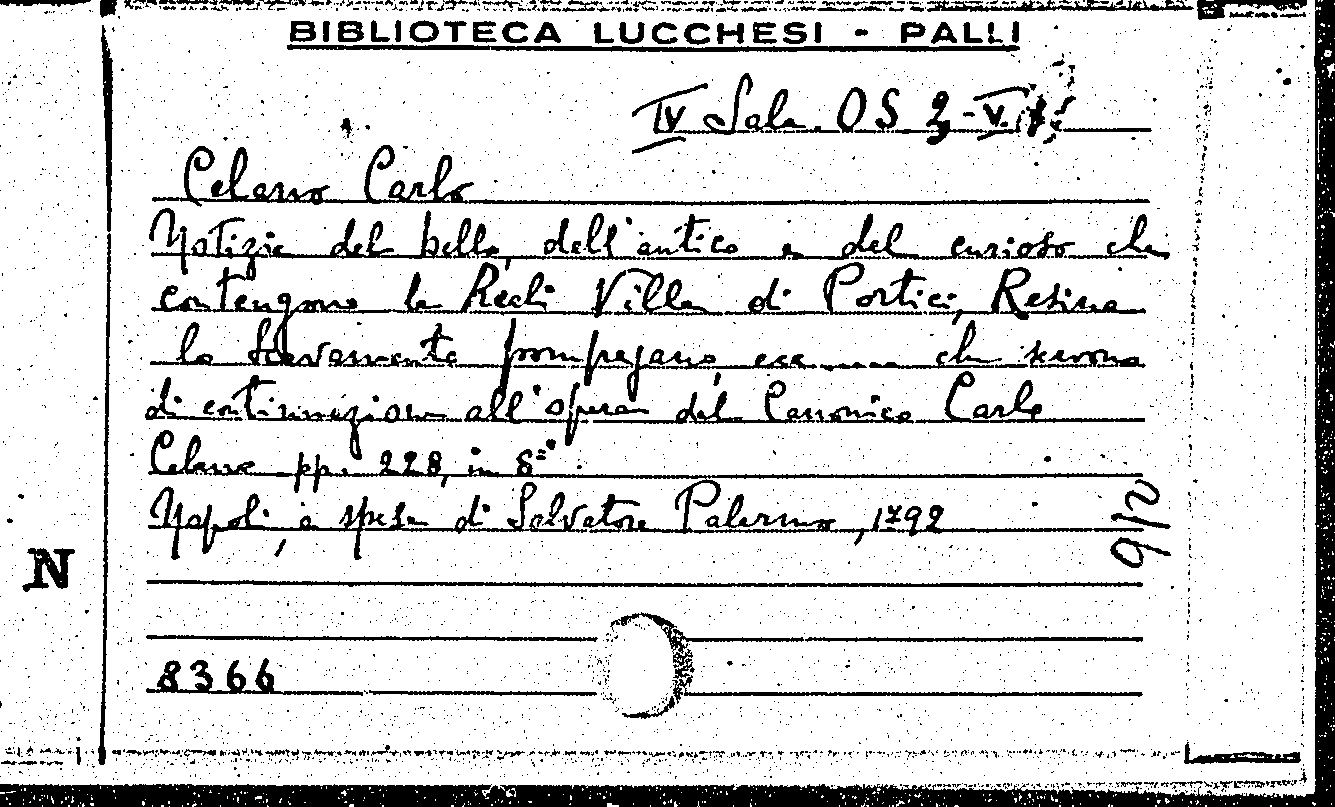 BIBLIOTECA LUCCHESI - PALLI
IV Sala. OS 2-V.
Celano Carlo
Notizie del bello, dell'antico e del curioso che
contengono le Reali Ville di Portici, Resina
lo Scavamento pompejano, ecc ... che servono
di continuazione all'opera del Canonico Carlo
Celano pp. 228, in 8º.
Napoli, a spese di Salvatore Palermo, 1792
N
8366